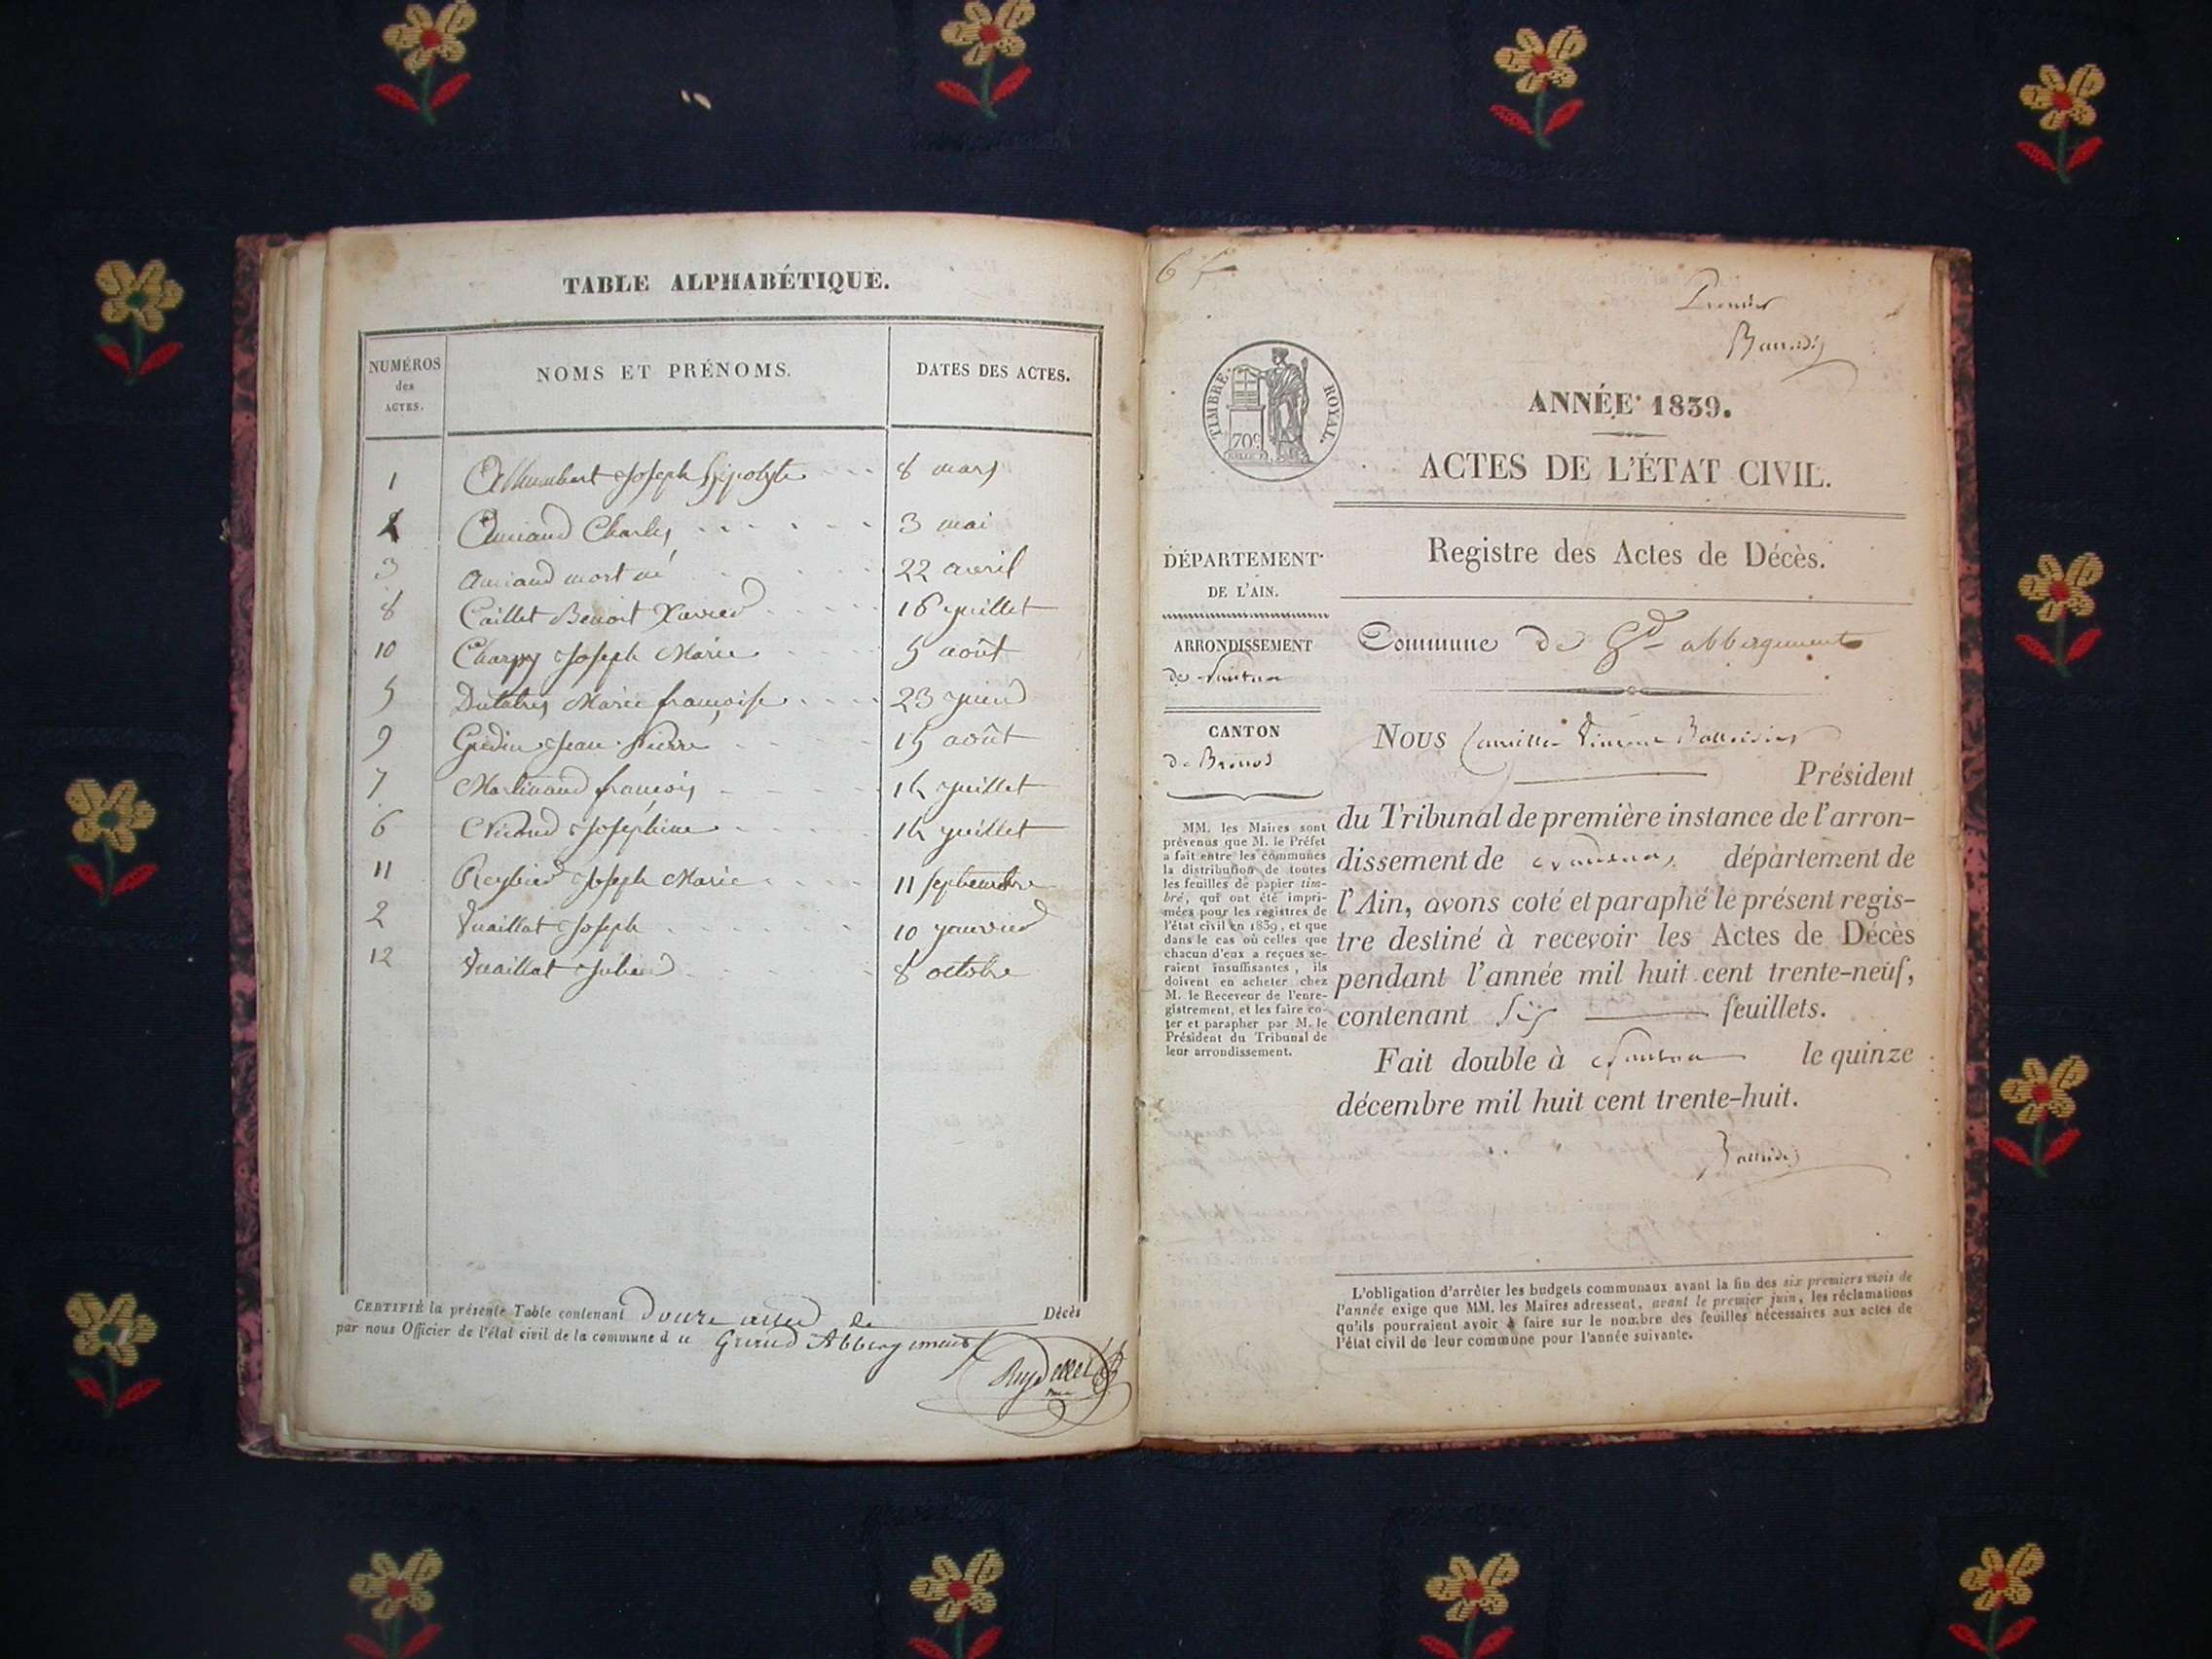 TABLE ALPHABÉTIQUE.
NUMÉROS des ACTES.
NOMS ET PRÉNOMS.
DATES DES ACTES.
1 Joseph hipolyte 8 mars
Charles 3 mai
3 mort né 22 avril
8 Caillet Benoit Xavier 16 juillet
10 Charpy Joseph Marie 5 août
5 Marie françoise 23 juin
9 Jean Pierre 15 août
7 Martinand françois 14 juillet
6 Josephine 14 juillet
11 Joseph Marie 11 septembre
2 Vuaillat Joseph 10 janvier
12 Vuaillat Julien 8 octobre
CERTIFIÉ la présente Table contenant douze actes de Décès
par nous Officier de l'état civil de la commune du Grand Abbergement
Premier
TIMBRE ROYAL.
ANNÉE 1839.
ACTES DE L'ÉTAT CIVIL.
Registre des Actes de Décès.
DÉPARTEMENT
DE L'AIN.
ARRONDISSEMENT
de Nantua
CANTON
de Brenod
MM. les Maires sont
prévenus que M. le Préfet
a fait entre les communes
la distribution de toutes
les feuilles de papier tim-
bré, qui ont été impri-
mées pour les registres de
l'état civil en 1839, et que
dans le cas où celles que
chacun d'eux a reçues se-
raient insuffisantes, ils
doivent en acheter chez
M. le Receveur de l'enre-
gistrement, et les faire co-
ter et parapher par M. le
Président du Tribunal de
leur arrondissement.
Commune de Gd abbergement
Nous Camille Vincent
Président
du Tribunal de première instance de l'arron-
dissement de Nantua, département de
l'Ain, avons coté et paraphé le présent regis-
tre destiné à recevoir les Actes de Décès
pendant l'année mil huit cent trente-neuf,
contenant six feuillets.
Fait double à Nantua le quinze
décembre mil huit cent trente-huit.
L'obligation d'arrêter les budgets communaux avant la fin des six premiers mois de
l'année exige que MM. les Maires adressent, avant le premier juin, les réclamations
qu'ils pourraient avoir à faire sur le nombre des feuilles nécessaires aux actes de
l'état civil de leur commune pour l'année suivante.